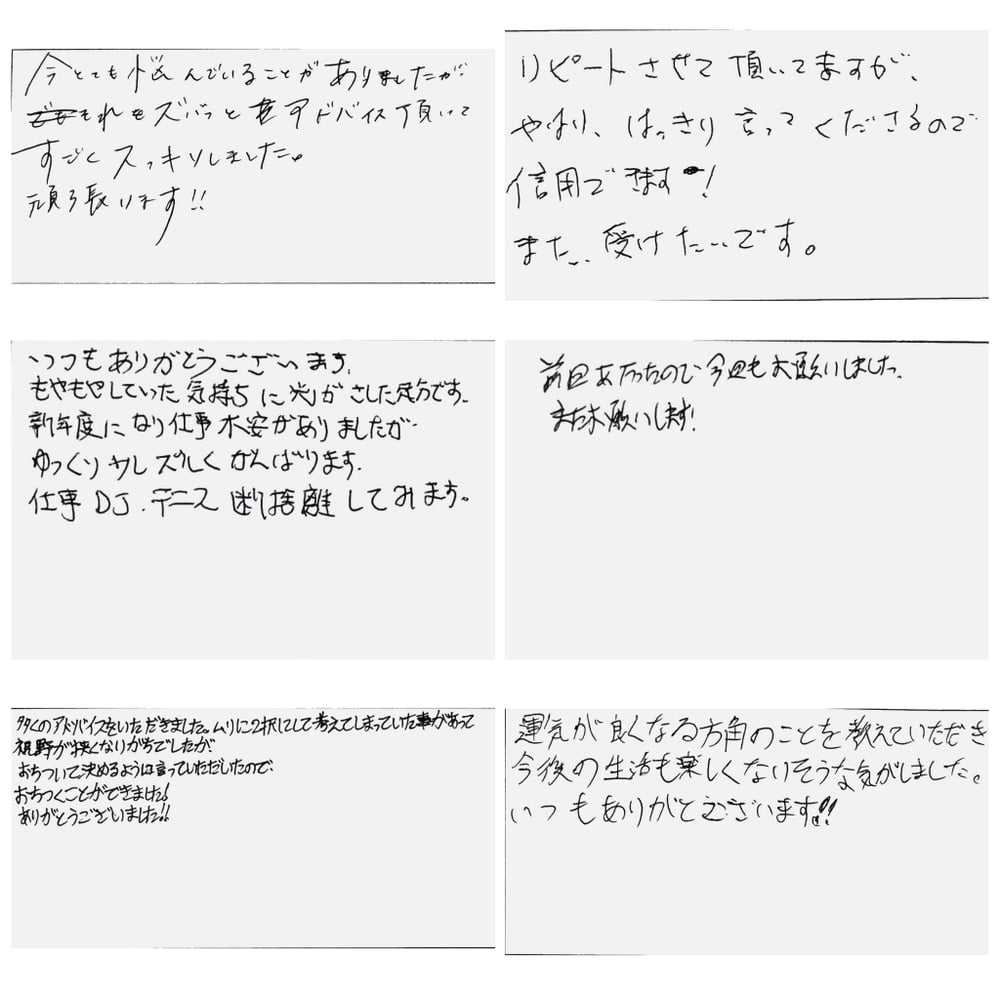 今とても悩んでいることがありましたが
それをズバっとアドバイス頂いて
すごくスッキリしました。
頑張ります!!
リピートさせて頂いてますが、
やはり、はっきり言ってくださるので
信用できます!
また、受けたいです。
いつもありがとうございます。
もやもやしていた気持ちに光がさした気分です。
新年度になり仕事不安がありましたが
ゆっくり少しズしくがんばります。
仕事 DJ.テニス 断捨離してみます。
前回あたったので今回もお願いしました。
またお願いします!
多くのアドバイスをいただきました。ムリに2択にして考えてしまっていた事があって
視野が狭くなりがちでしたが
おちついて決めるように言っていただいたので、
おちつくことができました!
ありがとうございました!!
運気が良くなる方角のことを教えていただき
今後の生活も楽しくなりそうな気がしました。
いつもありがとうございます!!